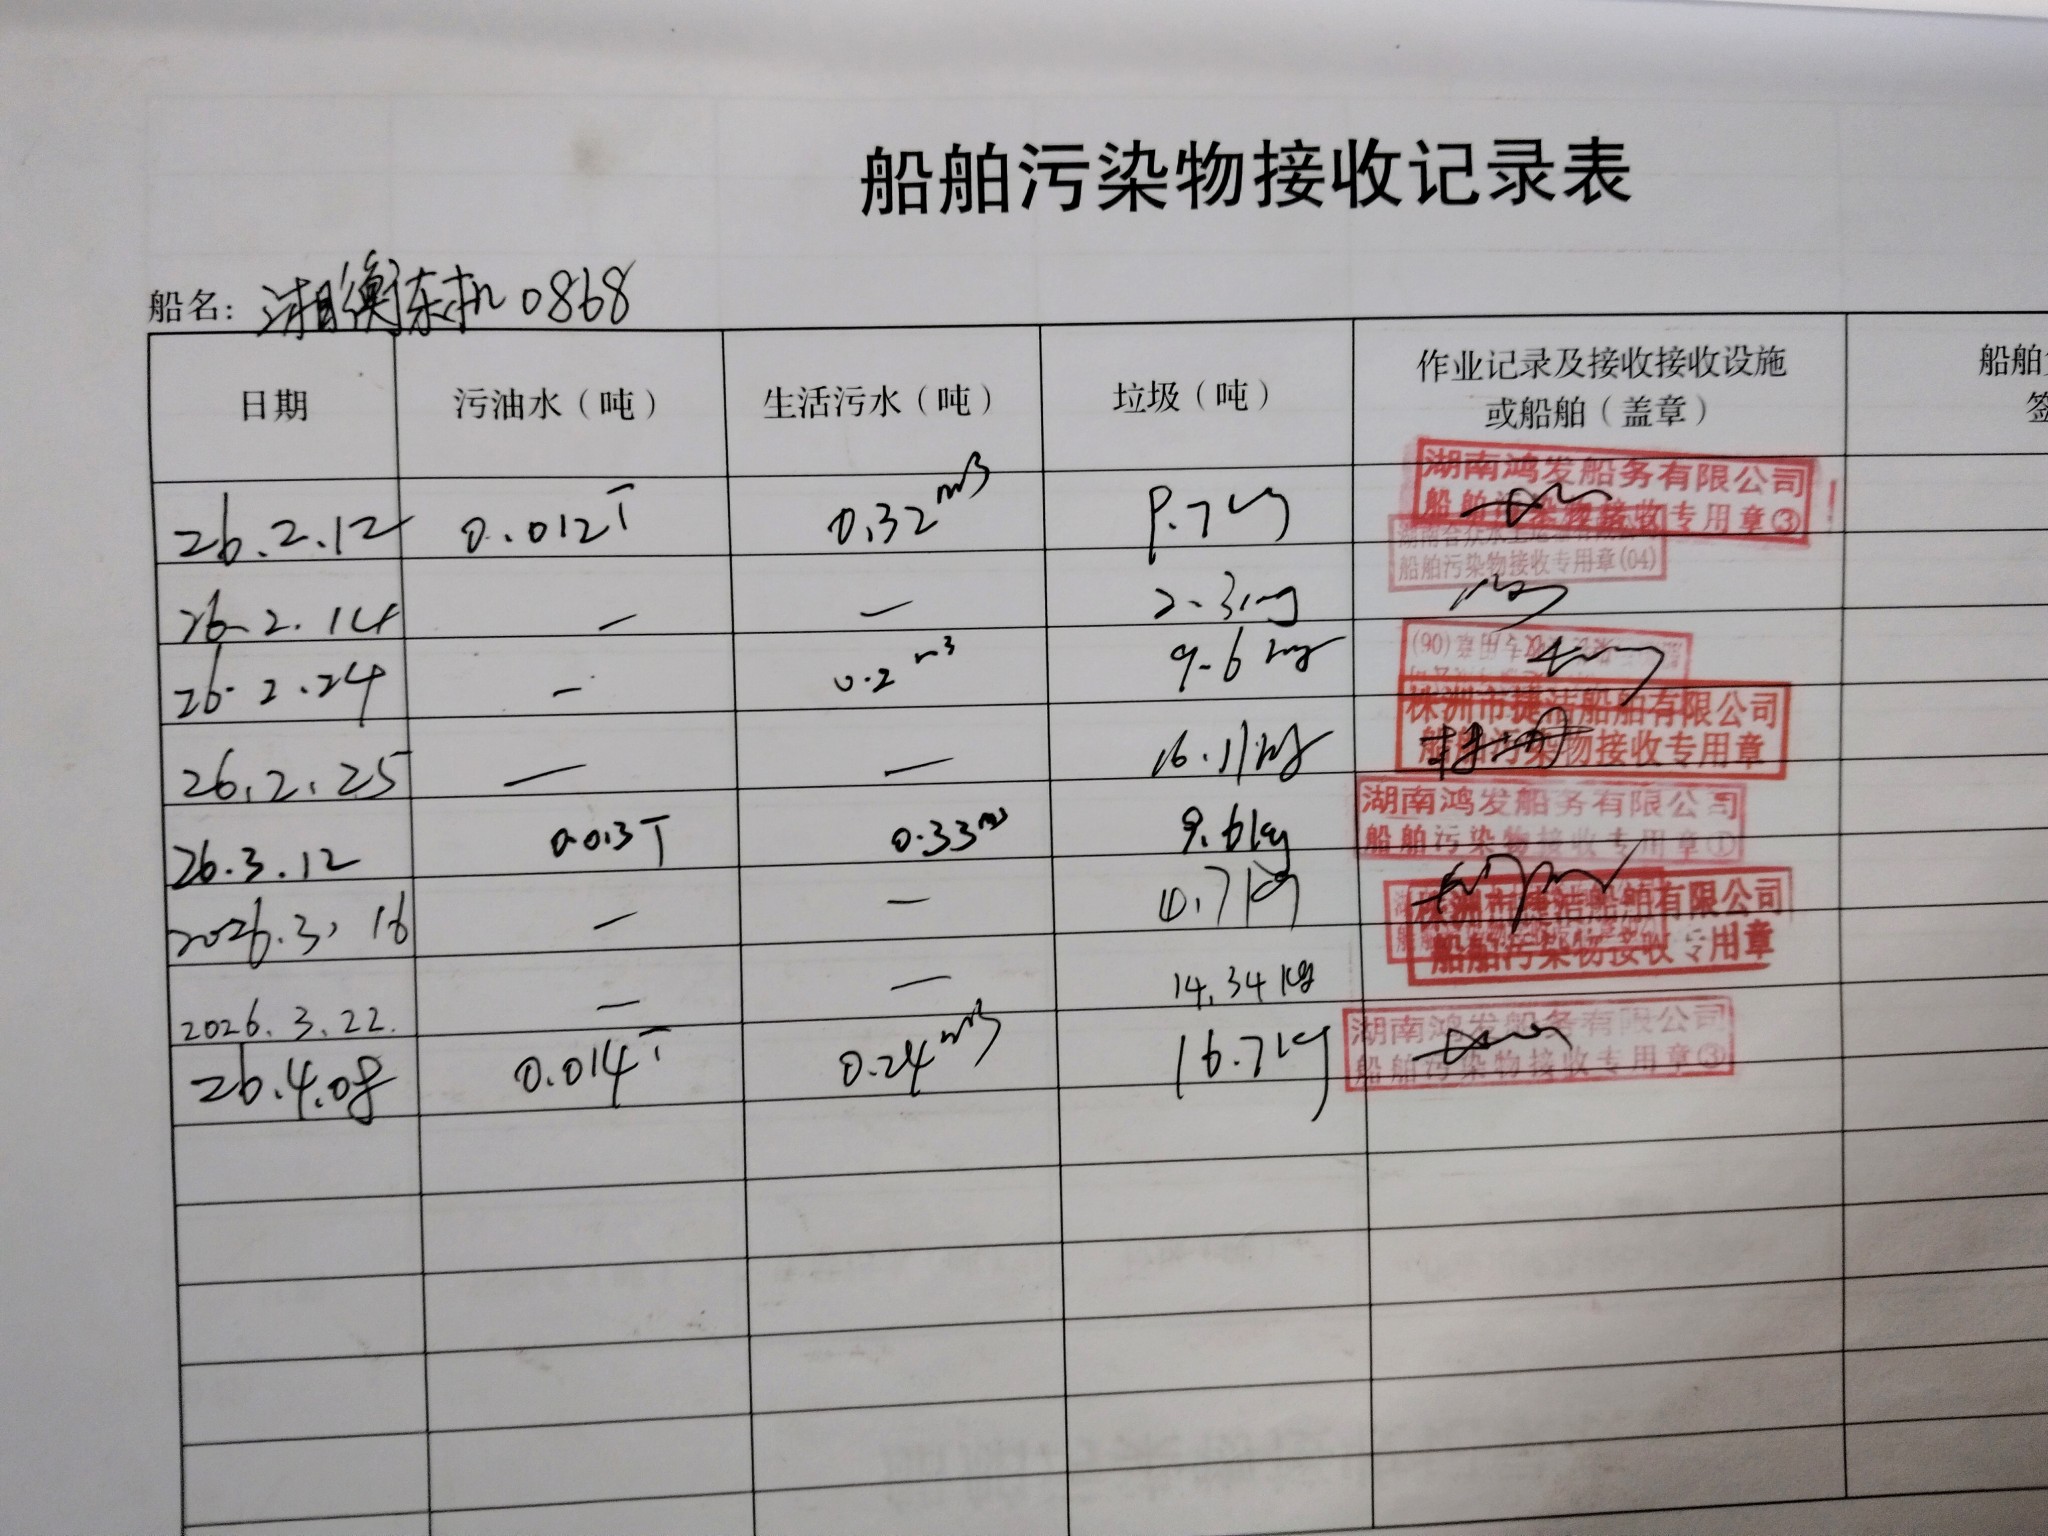 船舶污染物接收记录表
船名: 湘衡东机0868
日期 污油水（吨） 生活污水（吨） 垃圾（吨） 作业记录及接收接收设施 船舶
或船舶（盖章） 签
湖南鸿发船务有限公司
26.2.12 0.012T 0.32m3 9.7kg 船舶污染物接收专用章③
船舶污染物接收专用章(04)
26.2.14 — — 2.3kg
26.2.24 — 0.2m3 9.6kg
株洲市捷洁船舶有限公司
26.2.25 — — 16.11kg 船舶污染物接收专用章
湖南鸿发船务有限公司
26.3.12 0.013T 0.33m3 9.6kg 船舶污染物接收专用章①
2026.3.16 — — 10.7kg 株洲市捷洁船舶有限公司
船舶污染物接收专用章
2026.3.22. — — 14.34kg
湖南鸿发船务有限公司
26.4.08 0.014T 0.24m3 16.7kg 船舶污染物接收专用章③